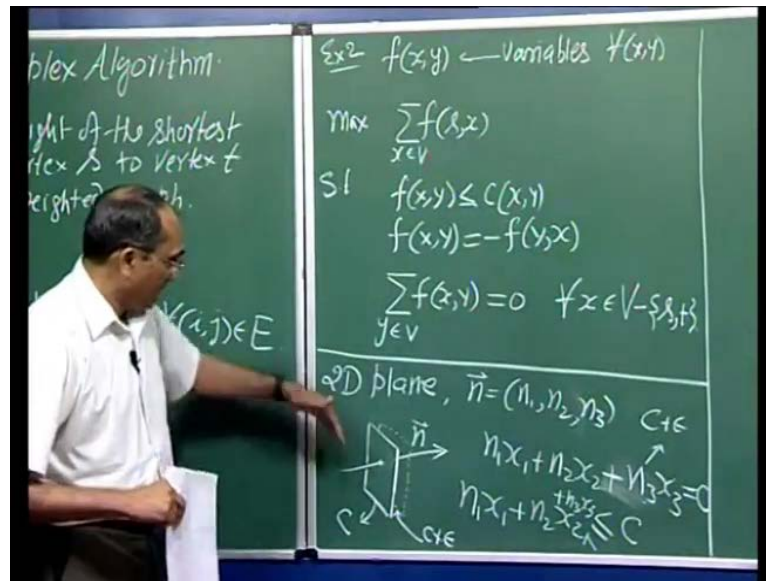 plex Algorithm.
ight of the shortest
rtex s to vertex t
weighted ph.
∀(i,j)∈E
Ex2 f(x,y) ← variables ∀(x,y)
max ∑f(s,x)
x∈V
St f(x,y) ≤ C(x,y)
f(x,y) = -f(y,x)
∑f(x,y) = 0 ∀x∈V-{s,t}
y∈V
2D plane, n⃗ = (n₁, n₂, n₃)
C+ε
n₁x₁+n₂x₂+n₃x₃=C
n₁x₁+n₂x₂+n₃x₃≤C
n⃗
C
C+ε